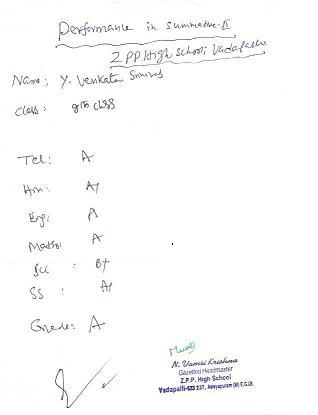 Performance in summative-II
ZPP High School; Vadapalli
Name: Y. Venkata Srinivas
class: 8th class
Tel: A
Hin: A+
Eng: A
Maths: A
Sci : B+
SS : A+
Grade: A
N. Vamsi Krishna
Gazetted Headmaster
Z.P.P. High School
Vadapalli-533 237, Atreyapuram (M) E.G.Dt.